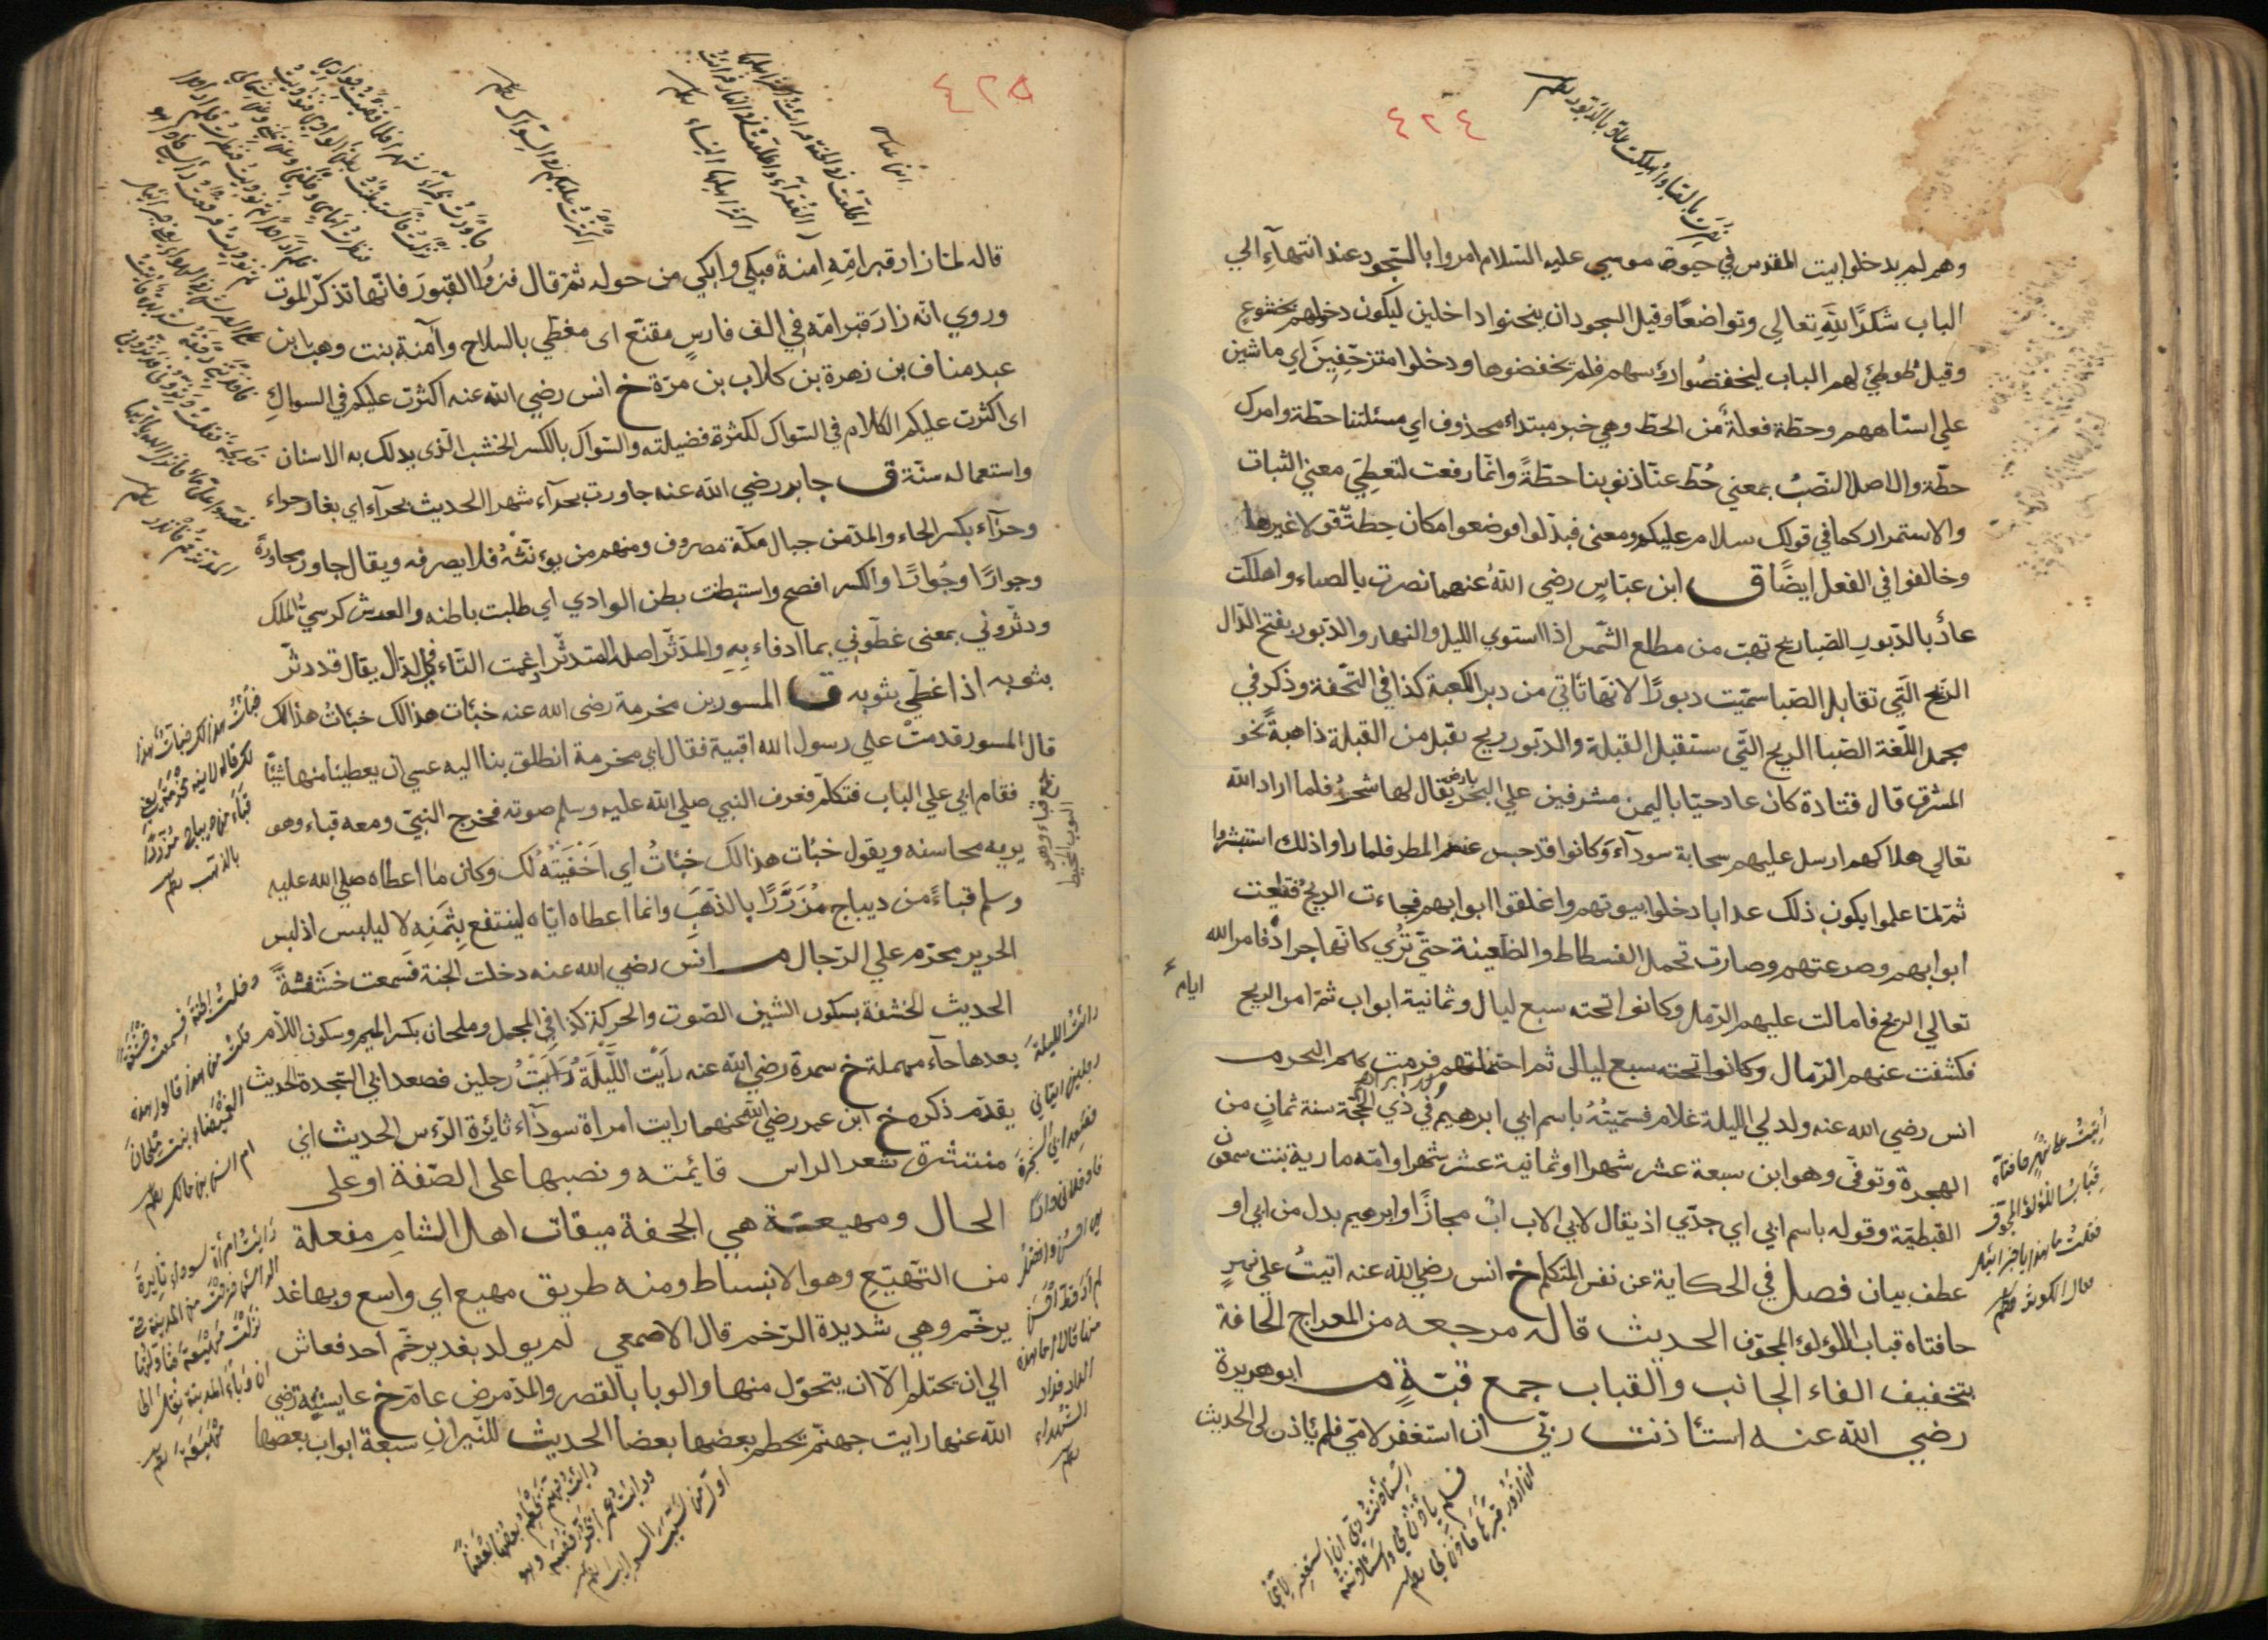 ٤٢٤
نصرت بالصبا واهلكت عاد بالدبور
وهم لم يدخلوا بيت المقدس في حيوة موسي عليه السلام امروا بالسجود عند انتهآءِ الي
الباب شكرًا للهِ تعالي وتواضعًا وقيل السجود ان ينحنوا داخلين ليكون دخولهم بخشوعٍ
وقيل طوطئ لهم الباب ليخفضوا رؤسهم فلم يخفضوها ودخلوا متزحفِينَ اي ماشين
علي استاههم وحطة فعلةٌ من الحط وهي خبر مبتداء محذوف اي مسئلتنا حطة وامرك
حطة والاصل النصبُ بمعني حُطَّ عنّا ذنوبنا حطّةً وانما رفعت لتعطِيَ معني الثبات
والاستمرار كما في قولك سلام عليكم ومعني فبدّلوا وضعوا مكان حِطةٌ قولا غيرها
وخالفوا في الفعل ايضًا ق ابن عباسٍ رضي اللهُ عنهما نصرت بالصباء واهلكت
عادٌ بالدّبور الصّبا ريح تهبّ من مطلع الشّمس اذا استوي الليل والنهار والدّبور بفتح الدّال
الرّيح الّتي تقابل الصّبا سمّيت دبورًا لانّها تاتي من دبر الكعبة كذا في التّحفة وذكر في
مجمل اللّغة الصّبا الريح التّي ستقبل القبلة والدّبور ريح تقبل من القبلة ذاهبةً نحو
المشرق قال قتادة كان عاد حيّا باليمن مشرفين علي البحر بارض يقال لها شحرٌ فلما اراد الله
تعالي هلاكهم ارسل عليهم سحابة سودآءَ وكانوا قد حبس عنهم المطر فلما راوا ذلك استبشروا
ثمّ لمّا علموا يكون ذلك عذابا دخلوا بيوتهم واغلقوا ابوابهم فجاءت الريحُ فقلعت
ابوابهم وصرعتهم وصارت تحمل الفسطاط والظّعينة حتّي تُرٰي كانّها جرادٌ فامر الله
تعالي الريح فامالت عليهم الرّمل وكانوا تحته سبع ليال وثمانية ابواب ثمّ امر الريح
ايام
فكشفت عنهم الرّمال وكانوا تحته سبع ليالى ثم احتملتهم فرمت بهم البحر م
انس رضي الله عنه ولد لي الليلة غلام فسمّيتُهُ باسم ابي ابرهيم في ذي الحجّة سنة ثمانٍ من
الهجرة وتوفّي وهو ابن سبعة عشر شهرا او ثمانية عشر شهرا وامّه مارية بنت سمعون
القبطيّة وقوله باسم ابي اي جدّي اذ يقال لابي الاب ابٌ مجازًا وابرهيم بدل من ابي او
عطف بيان فصل في الحكاية عن نفس المتكلم خ انس رضي الله عنه اتيتُ علي نهرٍ
حافتاه قباب اللؤلؤ المجوّف الحديث قاله مرجعه من المعراج الحافة
بتخفيف الفاء الجانب والقباب جمع قبّةٍ م ابو هريرة
رضي الله عنه استاذنت ربّي ان استغفر لامّي فلم ياذن لى الحديث
اُتيتُ علي نهرٍ حافتاه
قباب اللؤلؤ المجوّف
فقلتُ ما هذا يا جبرائيل
قال الكوثر
استأذنتُ ربّي ان استغفر لاُمّي
فلم يأذن لي واستأذنته
ان ازور قبرها فأذن لي
٤٢٥
قاله لمّا زار قبر امّهِ آمنةَ فبكي وابكي من حوله ثمّ قال فزوُرا القبورَ فانّها تذكّر الموت
وروي انّه زارَ قبر امّه في الف فارسٍ مقنّع اى مغطّي بالسلاح وآمنة بنت وهب ابن
عبد مناف بن زهرة بن كلاب بن مرّة خ انس رضي الله عنه اكثرت عليكم في السواكِ
اى اكثرت عليكم الكلام في السّواك لكثرة فضيلته والسّواك بالكسر الخشب الّذى يدلك به الاسنان
واستعماله سنّة ق جابر رضي الله عنه جاورت بحرآء شهرا الحديث بحرآءَ اي بغار حراء
وحرآء بكسر الحاء والمدّ من جبال مكّة مصروف ومنهم من يؤنثهُ فلا يصرفه ويقال جاور مجاورةً
وجوارًا وجُوارًا والكسر افصح واستبطنت بطن الوادي اي طلبت باطنه والعرش كرسيّ الملك
ودثّروني بمعني غطّوني بما ادفاء بِهِ والمدّثّر اصله المتدثّر ادغمت التّاء في الدّال يقال قد دثّر
بثوبه اذا غطّي بثوبه ق المسور بن مخرمة رضى الله عنه خبئات هذا لك خبئات هذا لك
قال المسور قدمتْ علي رسول الله اقبية فقال اي مخرمة انطلق بنا اليه عسي ان يعطينا منها شيئًا
فقام ابي علي الباب فتكلّم فعرف النبي صلي الله عليه وسلم صوته فخرج النبيّ ومعه قباء وهو
يريه محاسنه ويقول خبئات هذا لك خبئاتُ اي اَخفَيتُهُ لك وكان ما اعطاه صلي الله عليه
وسلم قباءً من ديباج مُزَرّرًا بالذّهَبِ وانما اعطاه ايّاه لينتفع بِثمَنِه لا ليلبس اذ لبس
الحرير محرّم علي الرّجال م انس رضي الله عنه دخلت الجنة فسمعت خشَفةً
الحديث الخشفة بسكون الشين الصّوت والحركة كذا في المجمل وملحان بكسر الميم وسكون اللاّم
بعدها حآء مهملة خ سمرة رضي الله عنه رأيت اللّيْلَةَ رَايتُ رجلين فصعدا بي الشّجرة الحديث
يقدّم ذكره خ ابن عمر رضي الله عنهما رايت امراة سودآء ثائرة الرّءس الحديث اني
منتشرة شعر الراس قائمته ونصبها على الصّفة او على
الحال ومهيعة هي الجحفة ميقات اهل الشامِ مفعلة
من التّهيّع وهو الانبساط ومنه طريق مهيع اي واسع وبها غد
يرخّم وهي شديدة الرّخم قال الاصمعي لم يولد بغدير خّم احد فعاش
الي ان يحتلم الاّ ان يتحوّل منها والوبا بالقصر والمدّ مرض عامّ خ عايشة رضي
الله عنها رايت جهنّم يحطم بعضها بعضا الحديث للنّيرانِ سبعة ابواب بعضها
ابن عباس
اطّلعتُ في الجنّة فرايتُ اكثر اهلها
الفُقَرآءَ واطّلعتُ في النار فرايتُ
اكثر اهلها النساء
اكثرتُ عليكم في السّواك
خبأتُ هذا لك خبأتُ هذا
بالذهب
دخلتُ الجنّةَ فسمعتُ خَشْفَةً
فقلتُ من هذا قالوا هذه
الغُمَيْصَاءُ بنت مِلْحَانَ
ام انس بن مالك
رأيتُ امرأة سوداء ثايرةَ
الرأس خرجتْ من المدينة حتّي
نزلتْ مهْيعَةَ فتأوّلتُها
انّ وَبَاءَ المدينة نُقل الي
مهيعَةَ
رأيتُ الليلةَ
رجلين اتياني
فصعدا بي الشجرةَ
فادخلاني دارًا
هي احسن وافضل
لم ارَ قطّ احسن
منها قالا اما هذه
الدار فدار
الشهداء
رايتُ جهنّم يحطم بعضُها بعضًا
ورايتُ عمرًا يجرّ قُصْبَه وهو
اوّل من سيّب السوايب